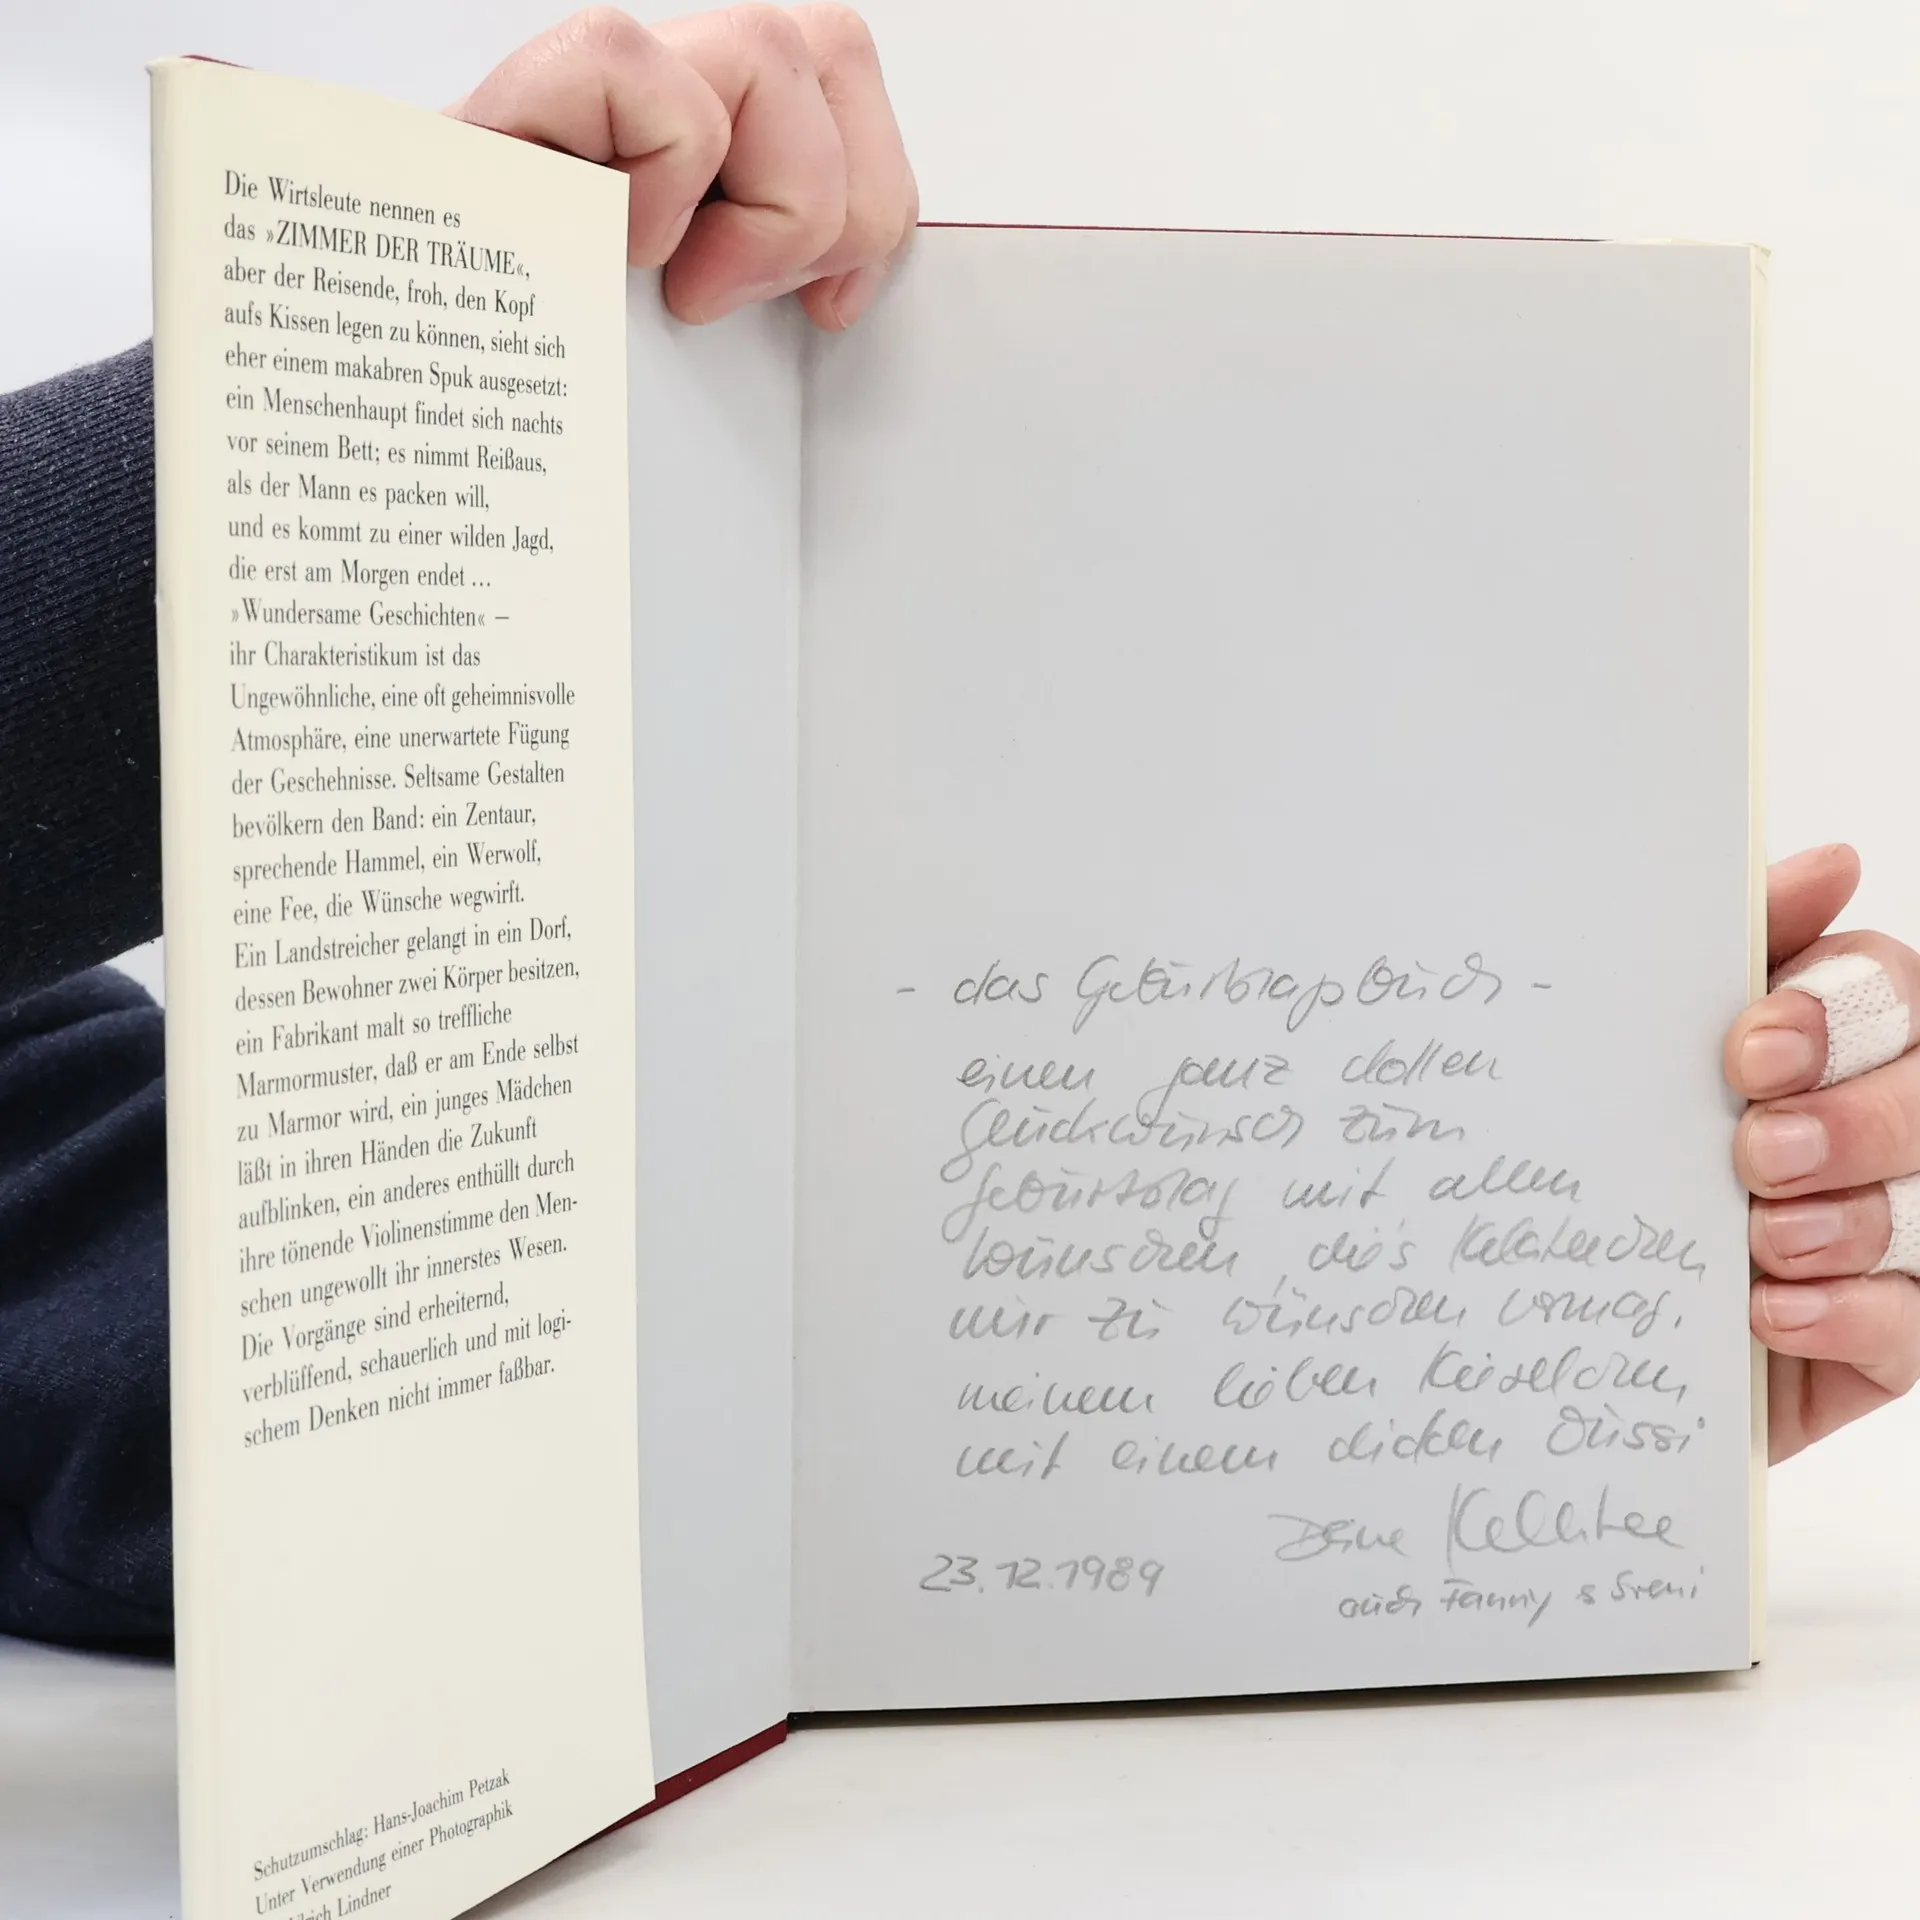 Die Wirtsleute nennen es
das »ZIMMER DER TRÄUME«,
aber der Reisende, froh, den Kopf
aufs Kissen legen zu können, sieht sich
eher einem makabren Spuk ausgesetzt:
ein Menschenhaupt findet sich nachts
vor seinem Bett; es nimmt Reißaus,
als der Mann es packen will,
und es kommt zu einer wilden Jagd,
die erst am Morgen endet ...
»Wundersame Geschichten« –
ihr Charakteristikum ist das
Ungewöhnliche, eine oft geheimnisvolle
Atmosphäre, eine unerwartete Fügung
der Geschehnisse. Seltsame Gestalten
bevölkern den Band: ein Zentaur,
sprechende Hammel, ein Werwolf,
eine Fee, die Wünsche wegwirft.
Ein Landstreicher gelangt in ein Dorf,
dessen Bewohner zwei Körper besitzen,
ein Fabrikant malt so treffliche
Marmormuster, daß er am Ende selbst
zu Marmor wird, ein junges Mädchen
läßt in ihren Händen die Zukunft
aufblinken, ein anderes enthüllt durch
ihre tönende Violinenstimme den Men-
schen ungewollt ihr innerstes Wesen.
Die Vorgänge sind erheiternd,
verblüffend, schauerlich und mit logi-
schem Denken nicht immer faßbar.
Schutzumschlag: Hans-Joachim Petzak
Unter Verwendung einer Photographik
Lindner
- das Geburtstagsbuch -
einen ganz dollen
Glückwunsch zum
Geburtstag mit allen
Wünschen,
nur zu wünschen vermag.
meinem lieben
mit einem dicken Bussi
Deine
23.12.1989
auch Fanny &